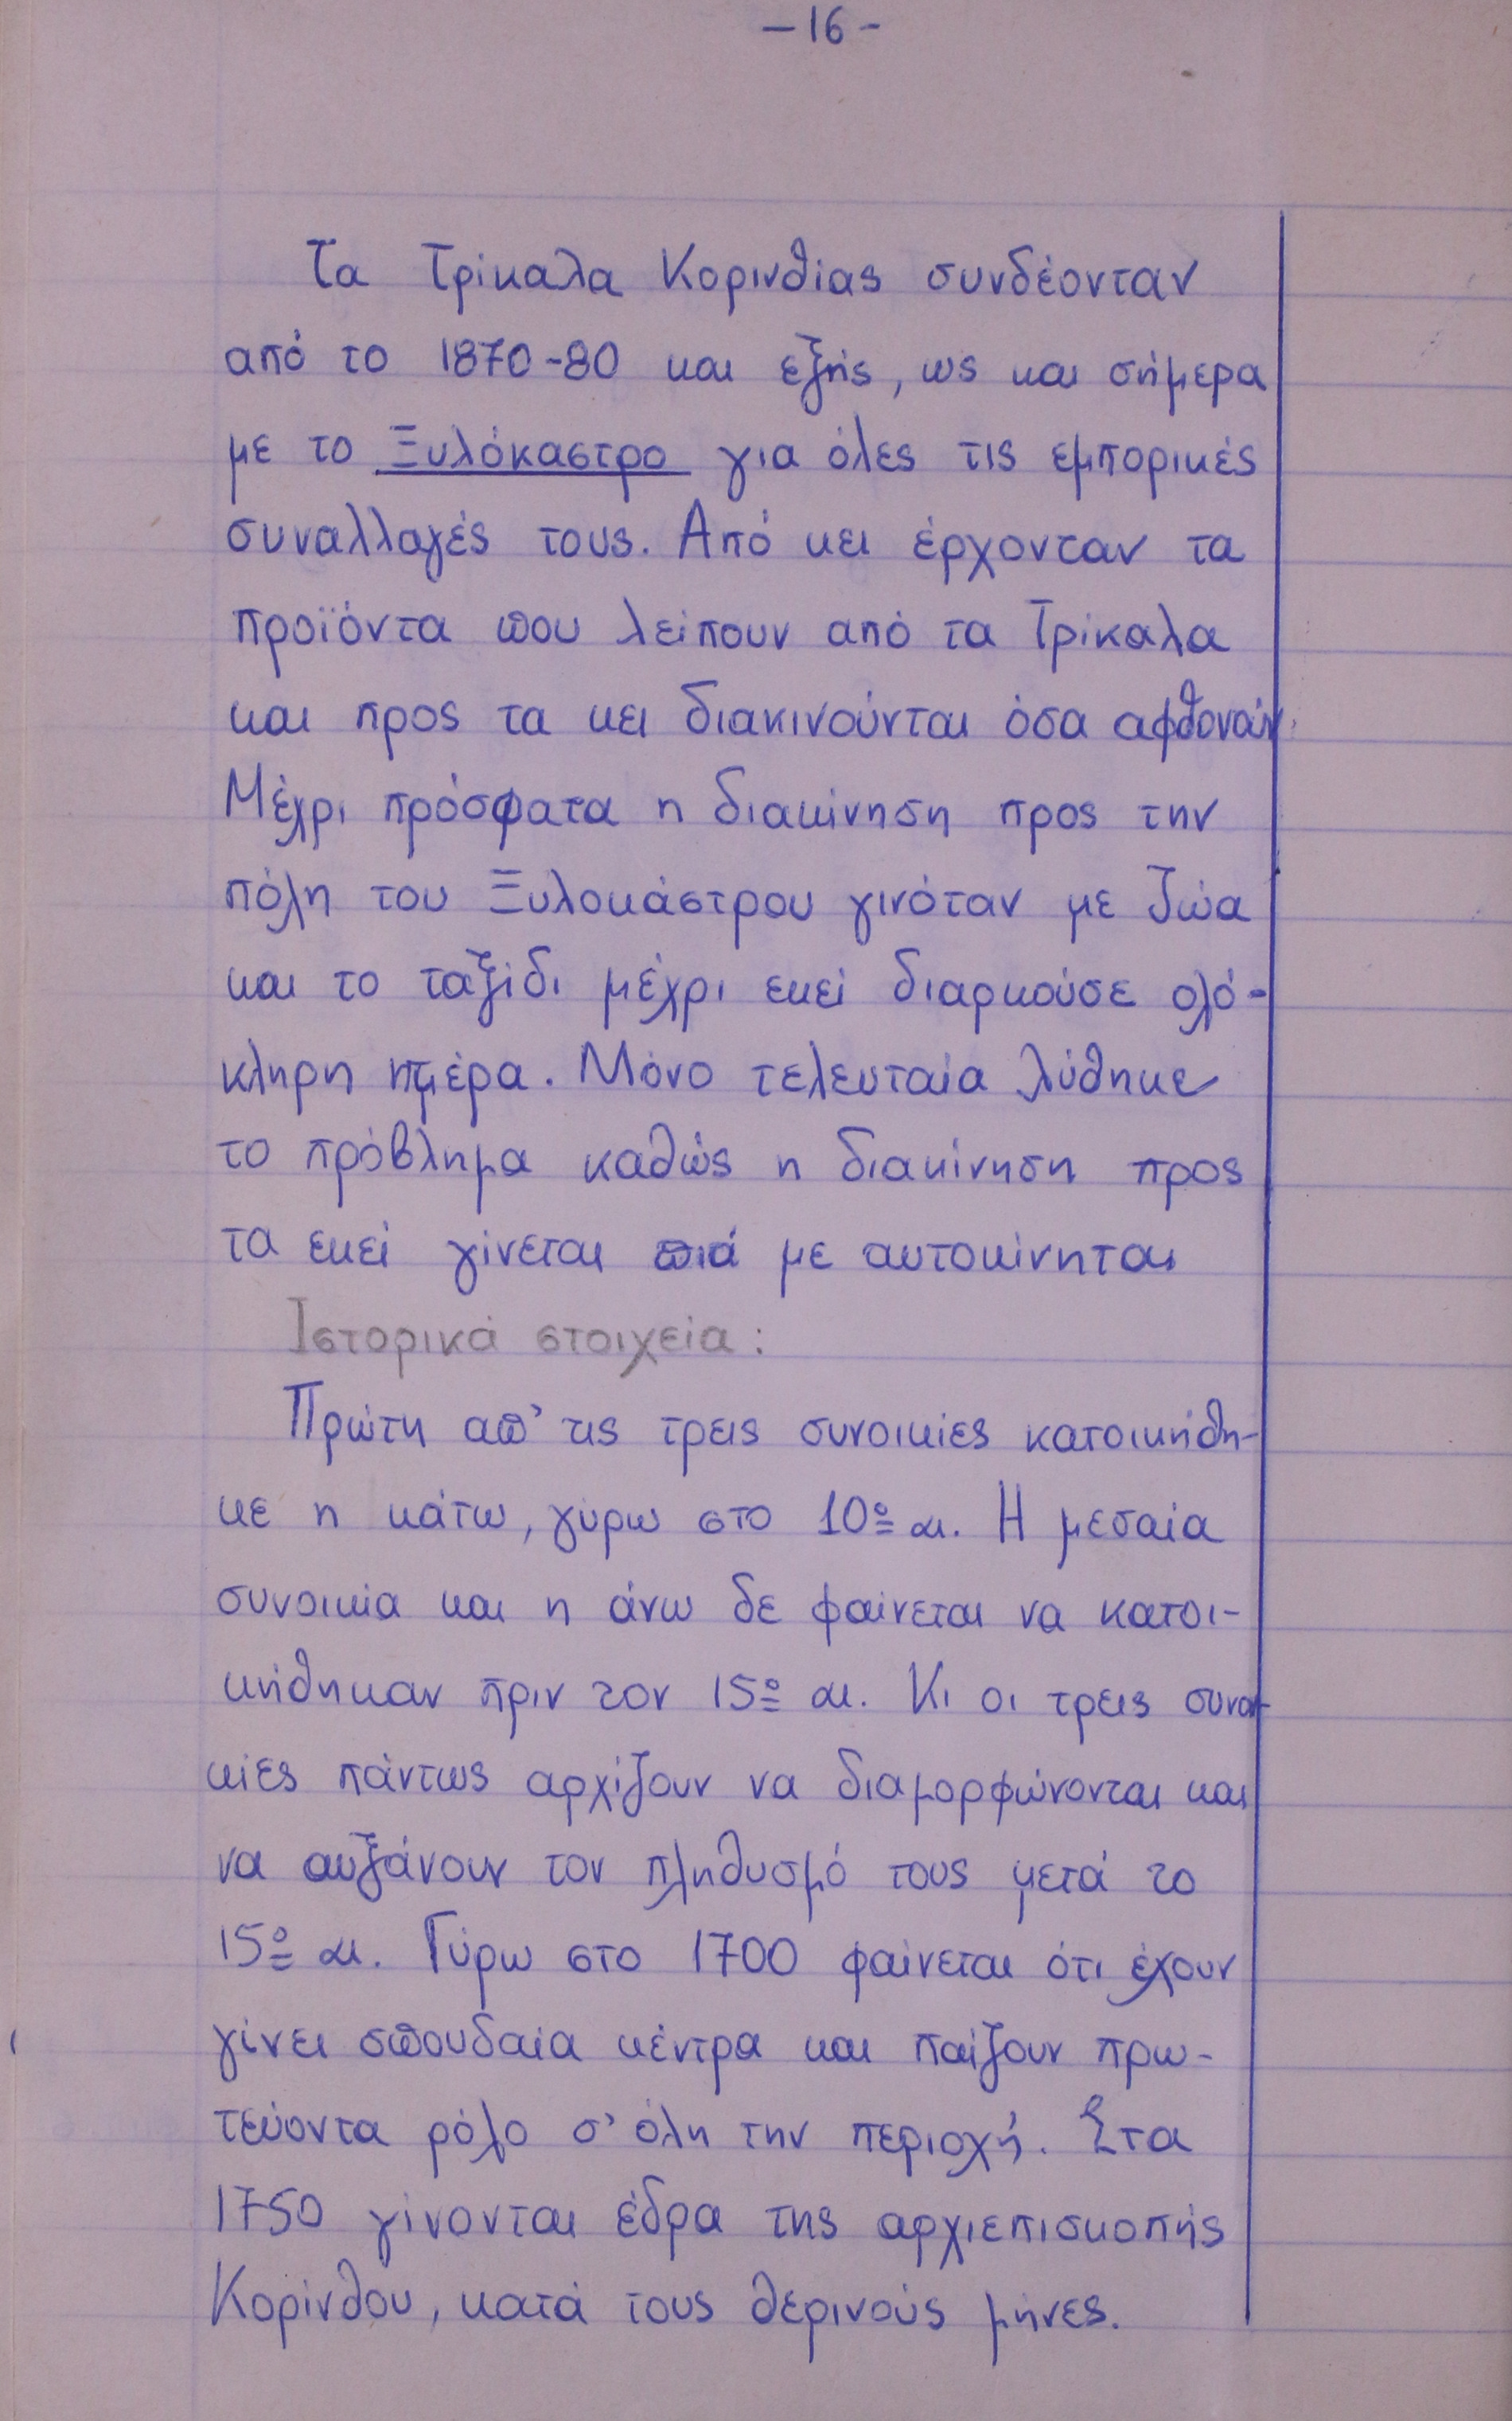 -16-
Τα Τρίκαλα Κορινθίας συνδέονταν
από το 1870-80 και εξής, ως και σήμερα
με το Ξυλόκαστρο για όλες τις εμπορικές
συναλλαγές τους. Από κει έρχονταν τα
προϊόντα που λείπουν από τα Τρίκαλα
και προς τα κει διακινούνται όσα αφθονούν.
Μέχρι πρόσφατα η διακίνηση προς την
πόλη του Ξυλοκάστρου γινόταν με ζώα
και το ταξίδι μέχρι εκεί διαρκούσε ολό-
κληρη ημέρα. Μόνο τελευταία λύθηκε
το πρόβλημα καθώς η διακίνηση προς
τα εκεί γίνεται πιά με αυτοκίνητα
Ιστορικά στοιχεία:
Πρώτη απ' τις τρεις συνοικίες κατοικήθη-
κε η κάτω, γύρω στο 10ο αι. Η μεσαία
συνοικία και η άνω δε φαίνεται να κατοι-
κήθηκαν πριν τον 15ο αι. Κι οι τρεις συνοι-
κίες πάντως αρχίζουν να διαμορφώνονται και
να αυξάνουν τον πληθυσμό τους μετά το
15ο αι. Γύρω στο 1700 φαίνεται ότι έχουν
γίνει σπουδαία κέντρα και παίζουν πρω-
τεύοντα ρόλο σ' όλη την περιοχή. Στα
1750 γίνονται έδρα της αρχιεπισκοπής
Κορίνθου, κατά τους θερινούς μήνες.